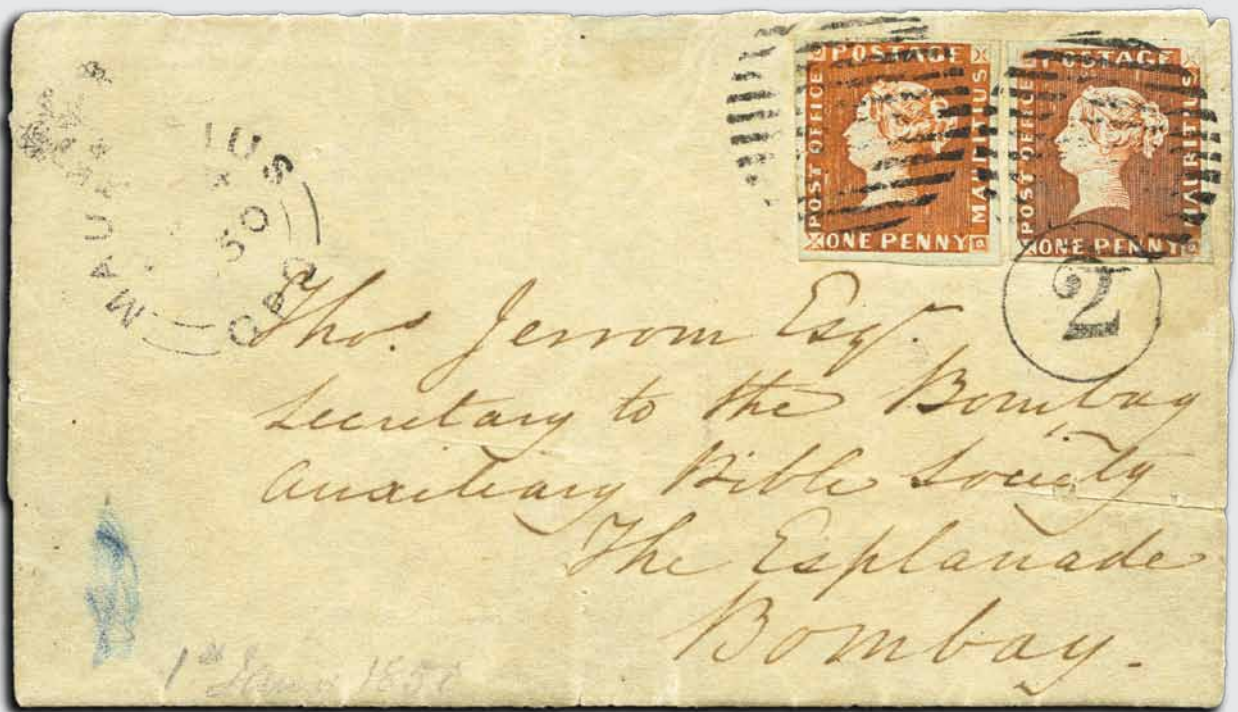 POSTAGE
POST OFFICE
MAURITIUS
ONE PENNY
POSTAGE
POST OFFICE
MAURITIUS
ONE PENNY
MAU IUS
50
GPO
2
Thos. Jerrom Esqr.
Secretary to the Bombay
Auxiliary Bible Society
The Esplanade
Bombay.
1st Jany 1850